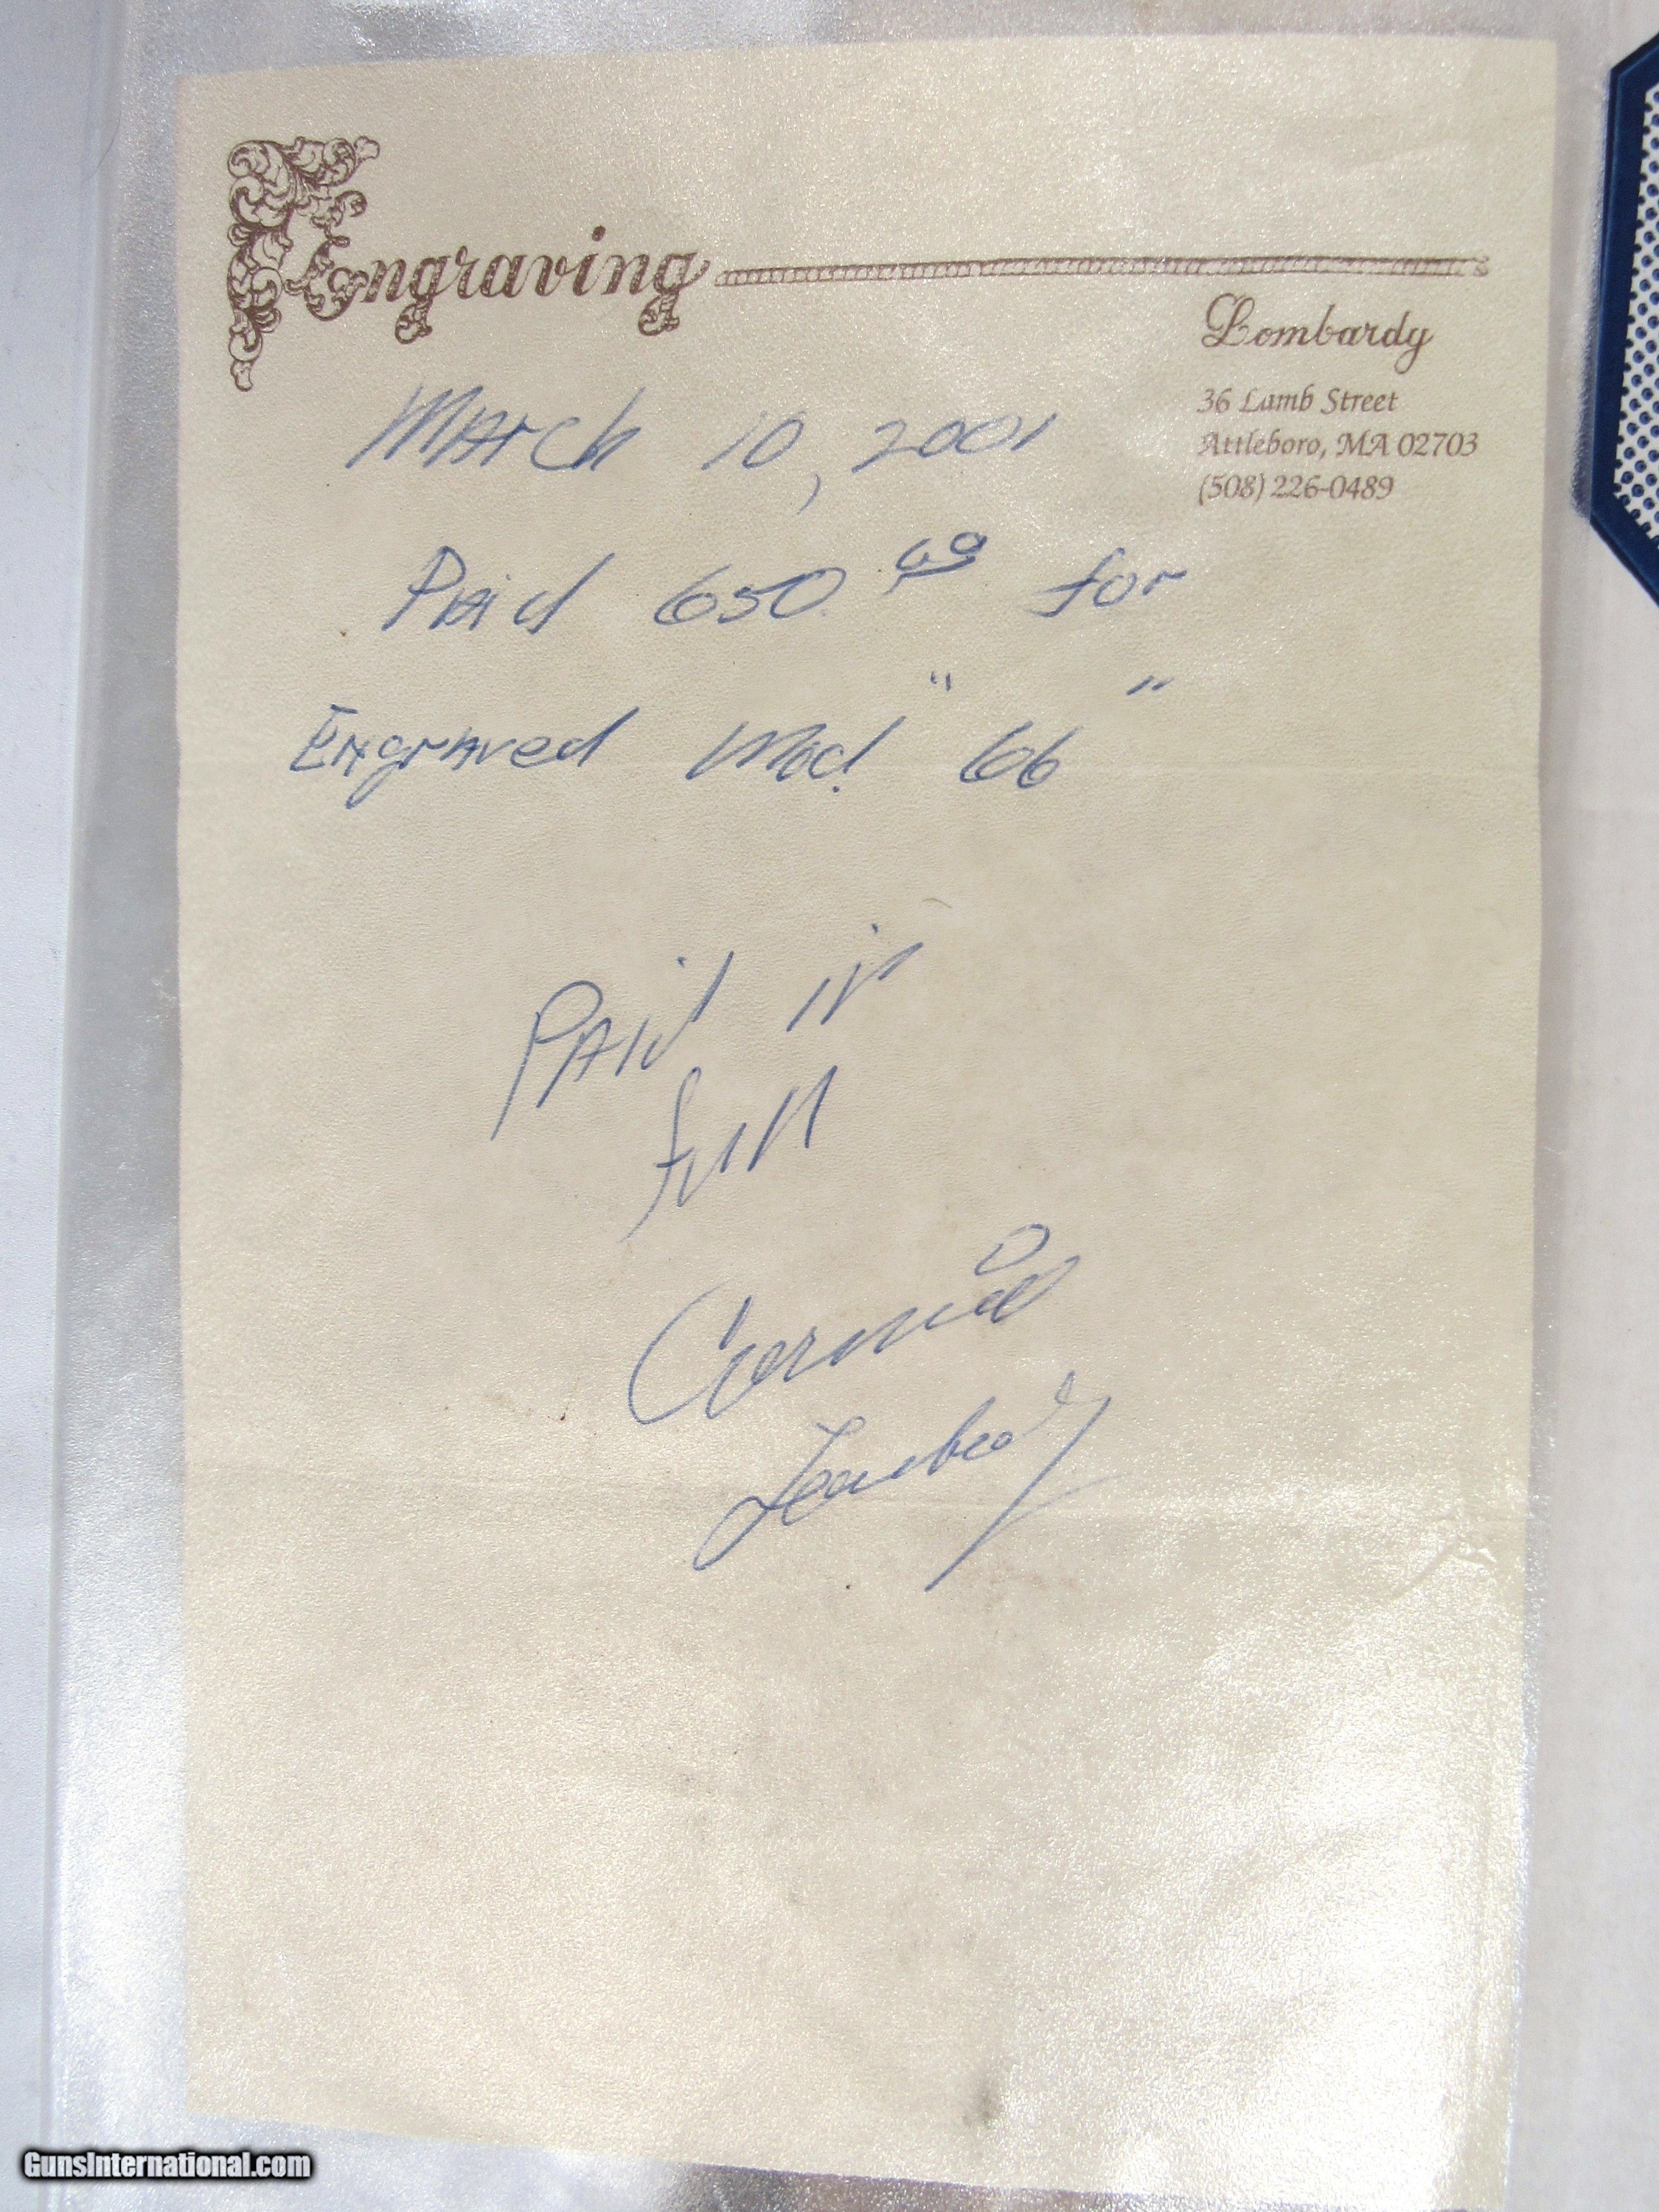 Engraving
Lombardy
36 Lamb Street
Attleboro, MA 02703
(508) 226-0489
March 10, 2001
Paid 650. for
Engraved Mod. "66"
Paid in
full
Lombardy
GunsInternational.com